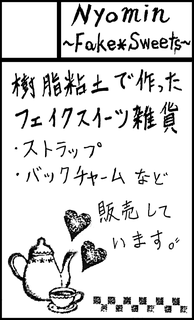 Nyomin
~Fake*Sweets~
樹脂粘土で作った
フェイクスイーツ雑貨
・ストラップ
・バックチャーム など
販売して
います。